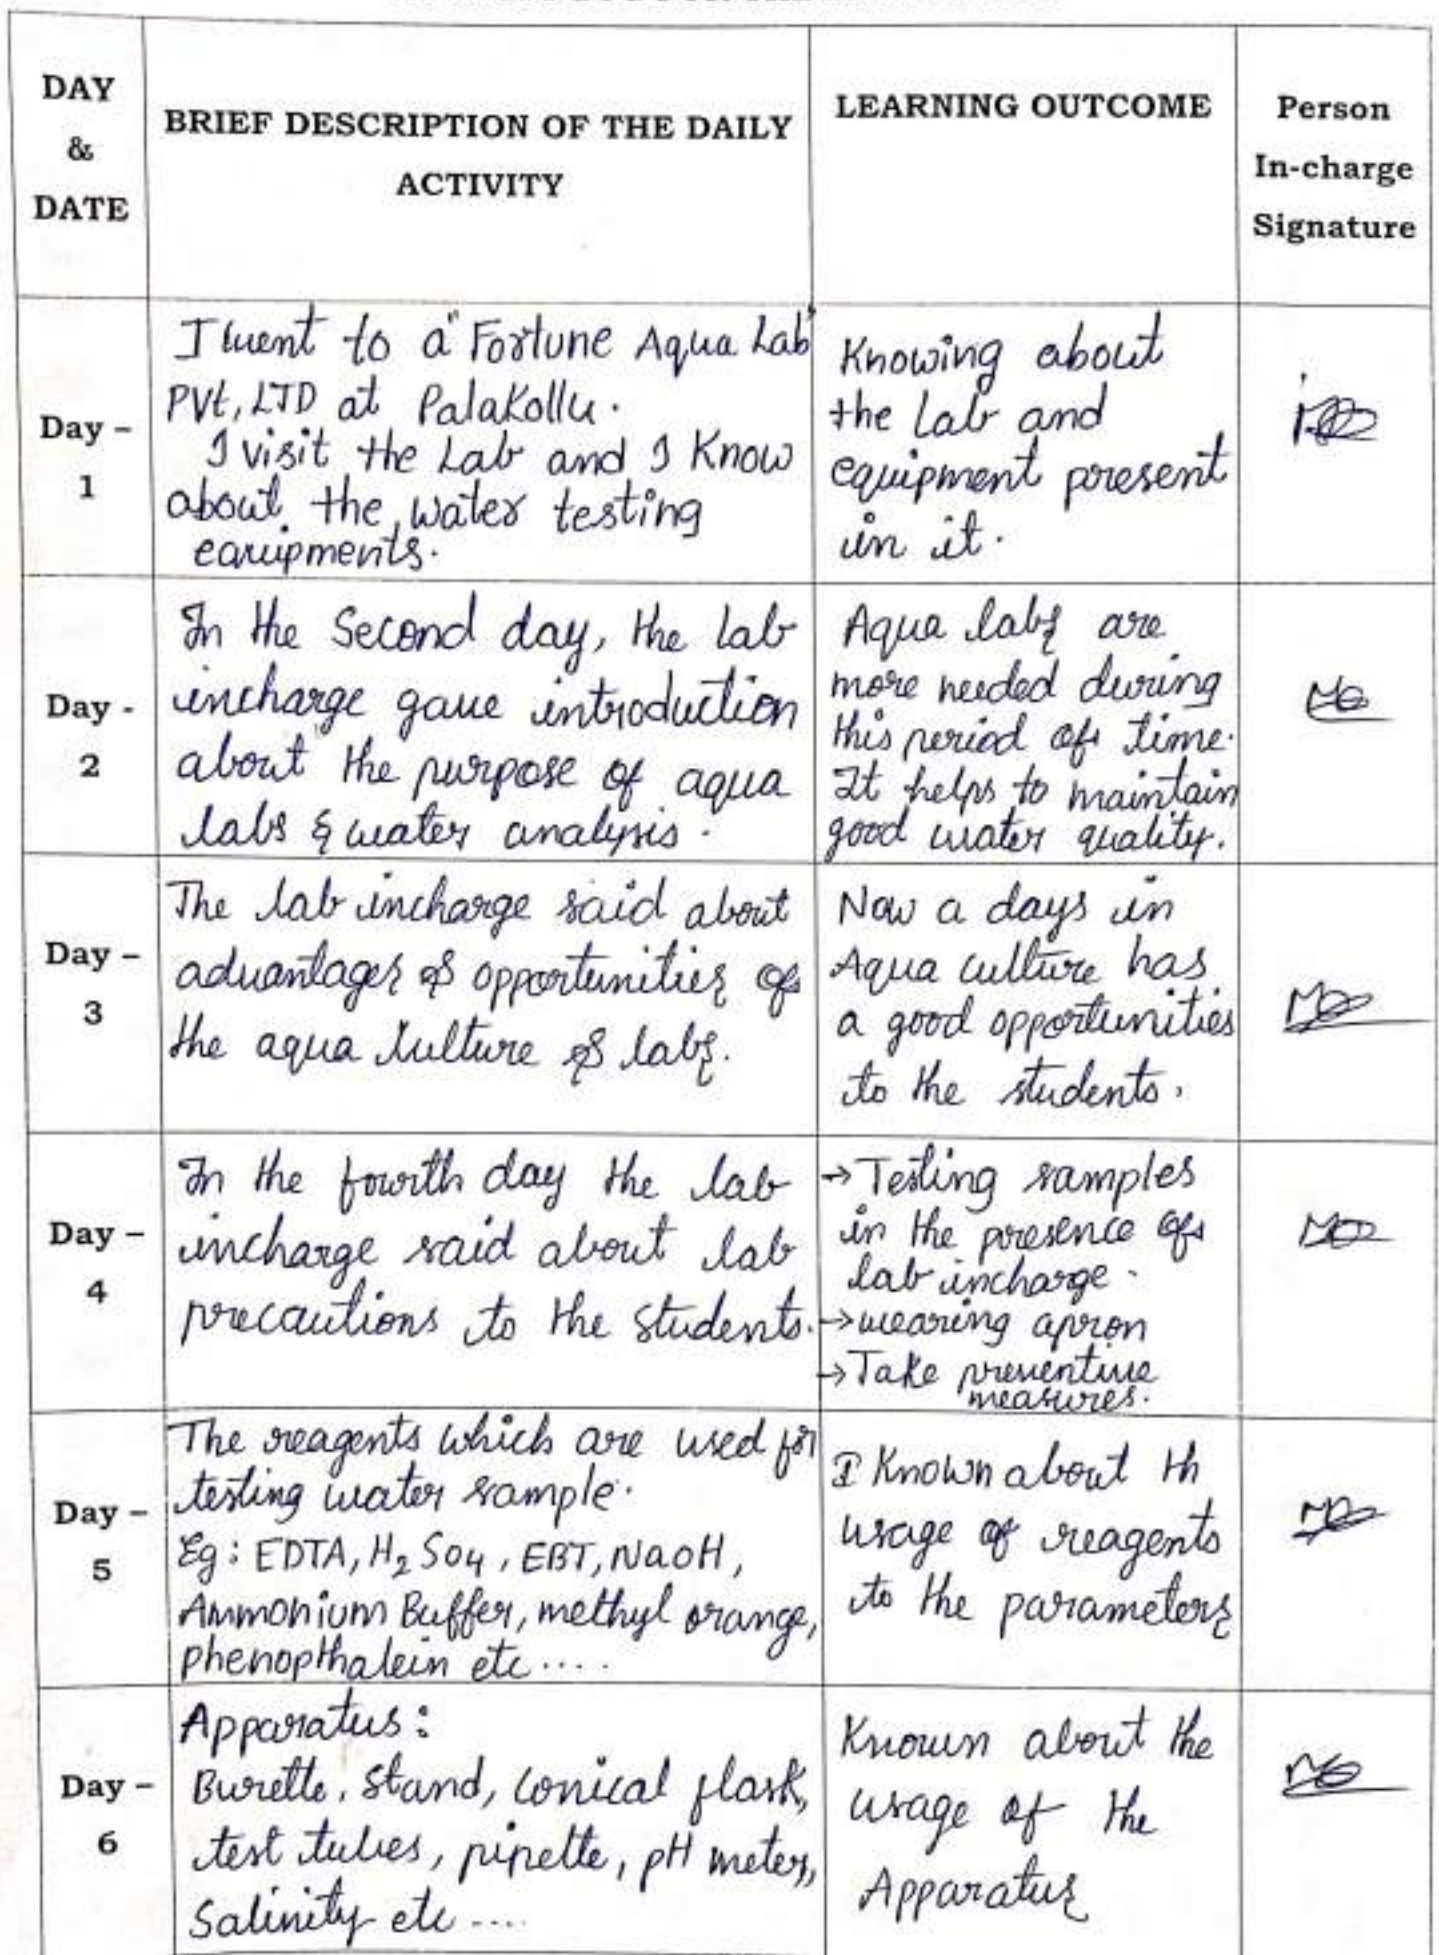 DAY
&
DATE
BRIEF DESCRIPTION OF THE DAILY
ACTIVITY
LEARNING OUTCOME
Person
In-charge
Signature
Day –
1
I went to a "Fortune Aqua Lab"
PVt, LTD at Palakollu.
I visit the Lab and I Know
about the water testing
equipments.
Knowing about
the Lab and
equipment present
in it.
Day -
2
In the Second day, the lab
incharge gave introduction
about the purpose of aqua
labs & water analysis.
Aqua labs are
more needed during
this period of time.
It helps to maintain
good water quality.
Day –
3
The lab incharge said about
advantages & opportunities of
the aqua culture & labs.
Now a days in
Aqua culture has
a good opportunities
to the students.
Day –
4
In the fourth day the lab
incharge said about lab
precautions to the students.
→ Testing samples
in the presence of
lab incharge.
→ wearing apron
→ Take preventive
measures.
Day –
5
The reagents which are used for
testing water sample.
Eg: EDTA, H₂ So₄, EBT, NaoH,
Ammonium Buffer, methyl orange,
phenopthalein etc ....
I Known about th
usage of reagents
to the parameters
Day –
6
Apparatus:
Burette, stand, conical flask,
test tubes, pipette, pH meters,
Salinity etc ....
Known about the
usage of the
Apparatus